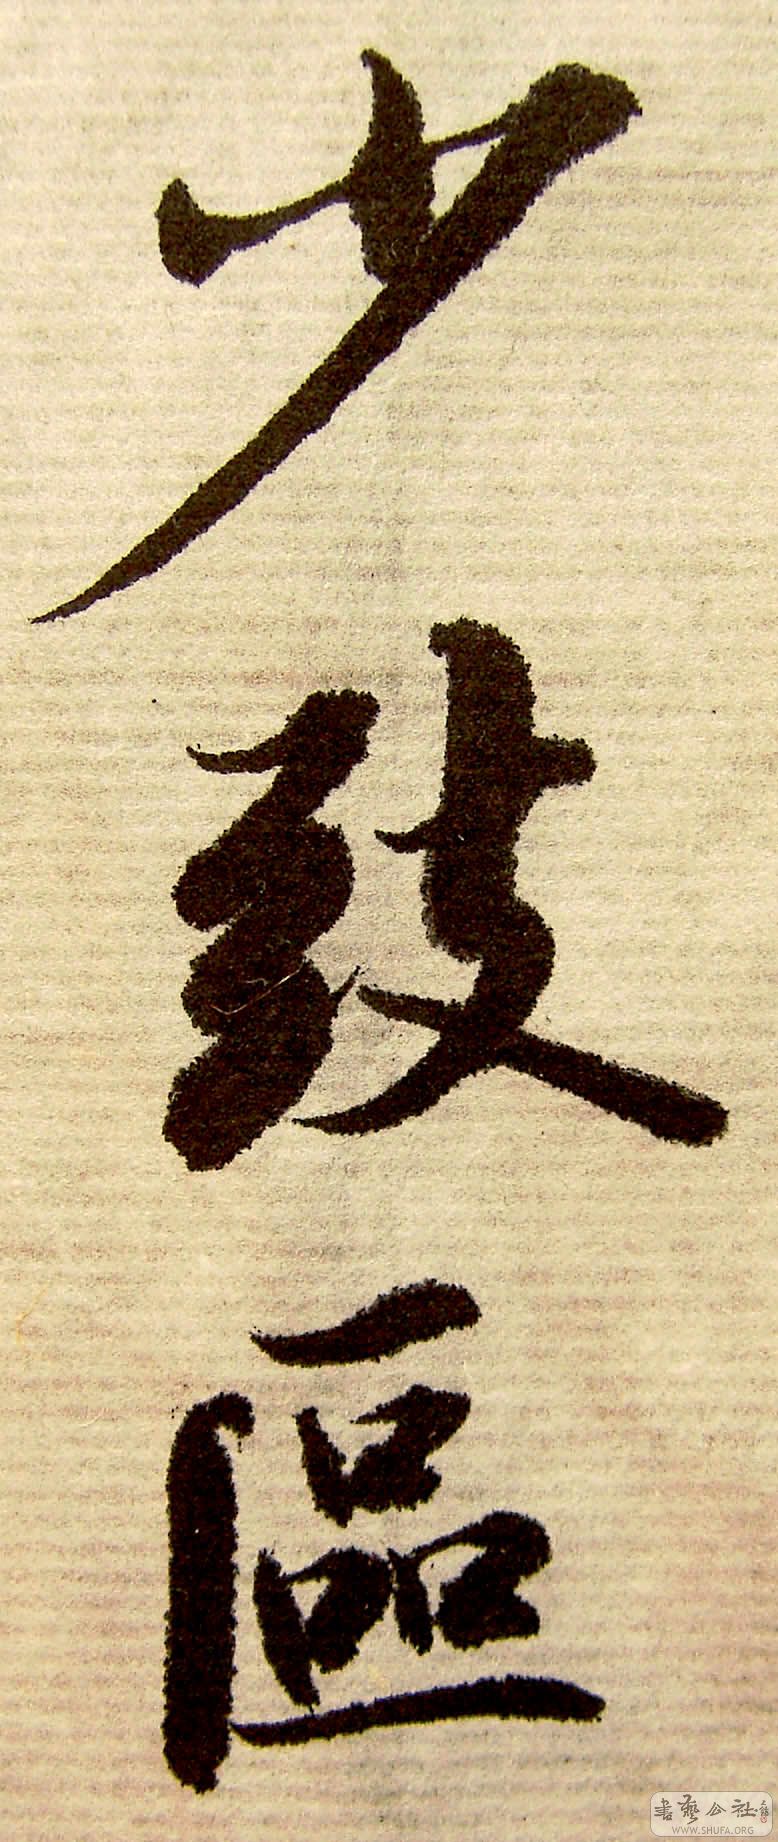 少致區
書藝公社
WWW.SHUFA.ORG